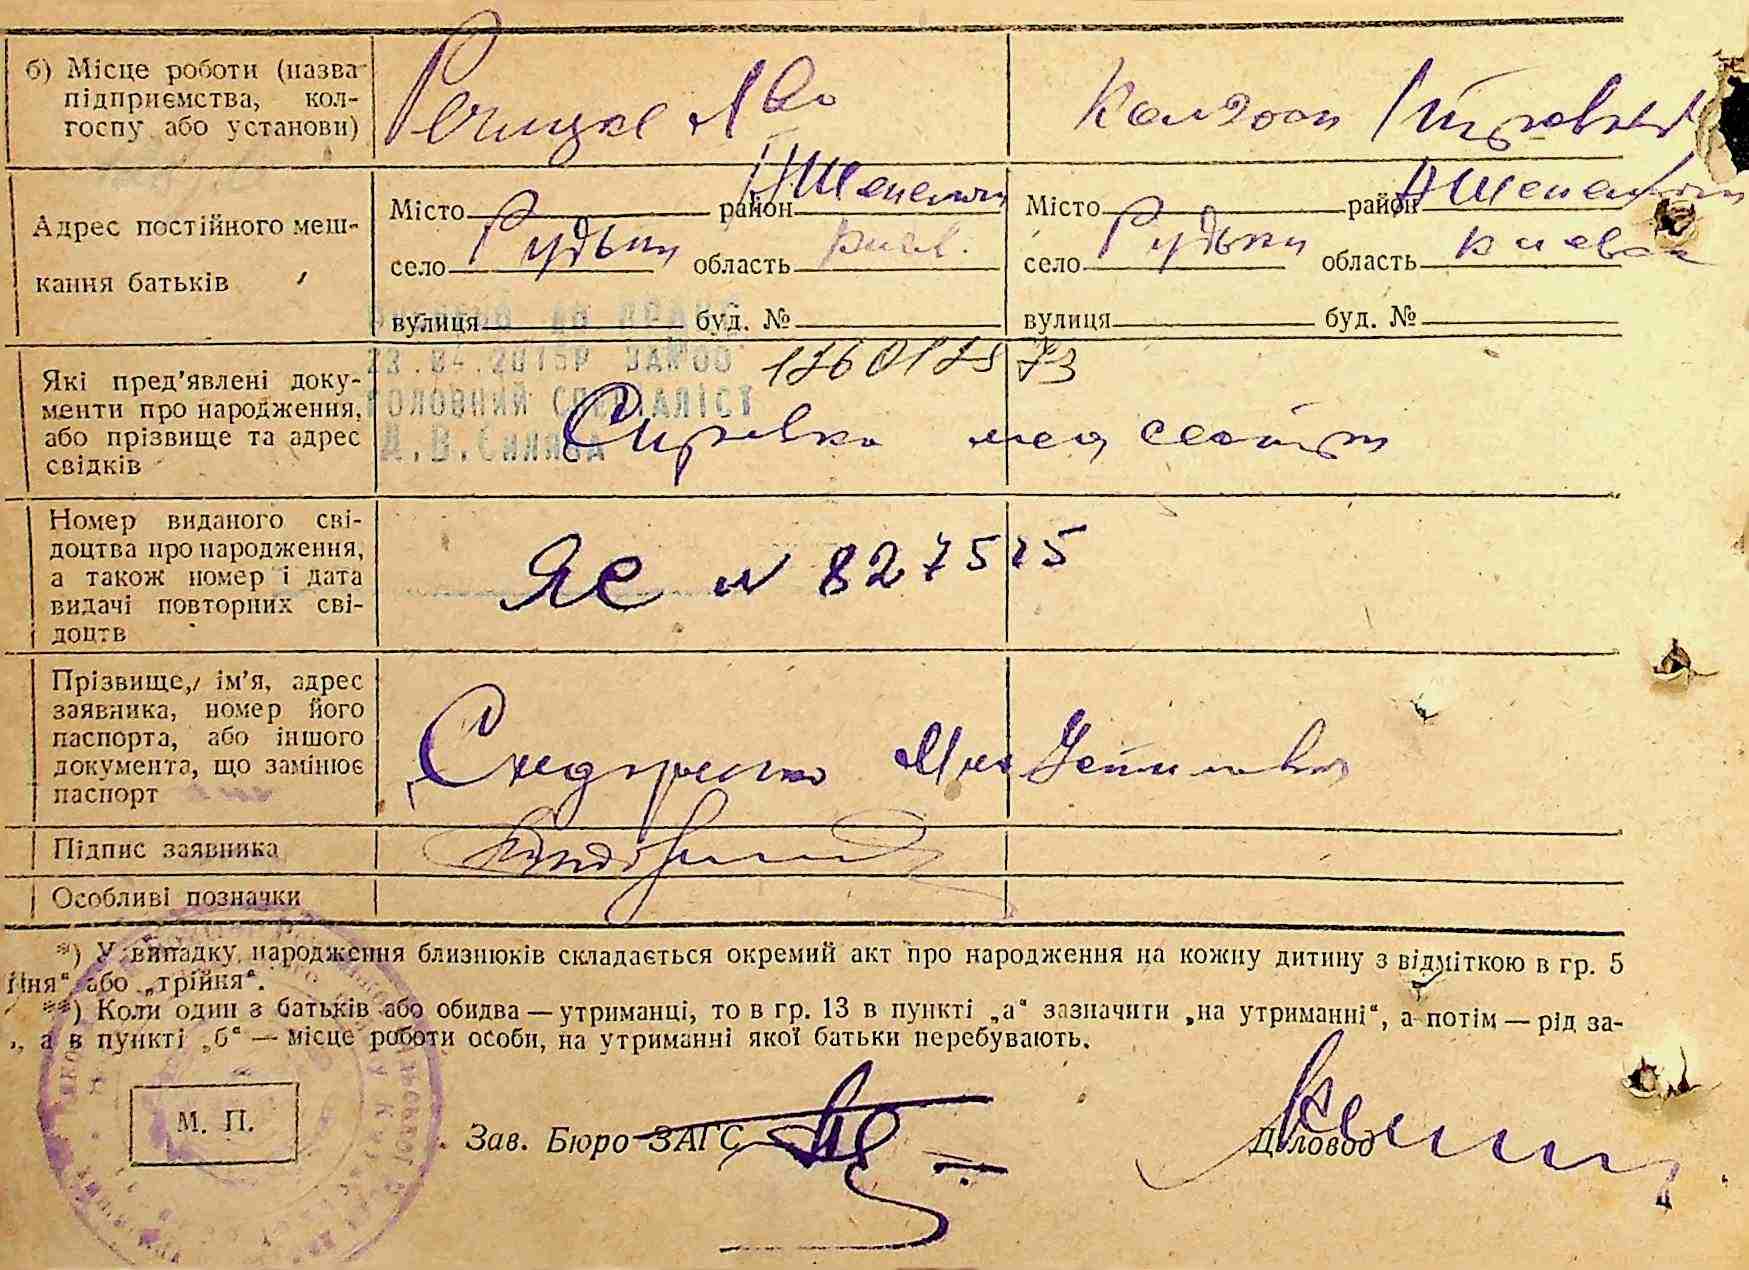 б) Місце роботи (назва
підприємства, кол-
госпу або установи)
Колгосп
Адрес постійного меш-
кання батьків
Місто район Шепелич
село Рудьки область Київ.
вулиця буд. №
Місто район Шепелич
село Рудьки область Киевск
вулиця буд. №
ГОЛОВНИЙ СПЕЦІАЛІСТ
Які пред'явлені доку-
менти про народження,
або прізвище та адрес
свідків
Справка
Номер виданого сві-
доцтва про народження,
а також номер і дата
видачі повторних сві-
доцтв
ЯС N 827515
Прізвище, ім'я, адрес
заявника, номер його
паспорта, або іншого
документа, що замінює
паспорт
Сидоренко
Підпис заявника
Особливі позначки
*) У випадку народження близнюків складається окремий акт про народження на кожну дитину з відміткою в гр. 5
йня" або „трійня".
**) Коли один з батьків або обидва — утриманці, то в гр. 13 в пункті „а" зазначити „на утриманні", а потім — рід за-
, а в пункті „б" — місце роботи особи, на утриманні якої батьки перебувають.
М. П.
Зав. Бюро ЗАГС
Діловод